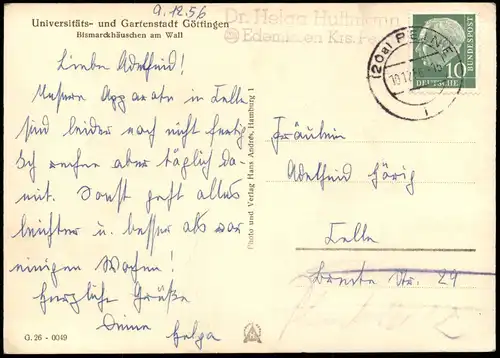 9.12.56
Universitäts- und Gartenstadt Göttingen
Bismarckhäuschen am Wall
Dr. Helga
Edemissen Krs. Pe
(20a) PEINE
10.12
10
DEUTSCHE
BUNDESPOST
Liebe Adelheid!
Unsere Apparate in Celle
sind leider noch nicht fertig
Ich rechne aber täglich da-
mit. Sonst geht alles
leichter u. besser als vor
einigen Wochen!
Herzliche Grüße
Deine Helga
Photo und Verlag Hans Andres, Hamburg 1
Fräulein
Adelheid Hörig
Celle
Breite Str. 29
G. 26 - 0049